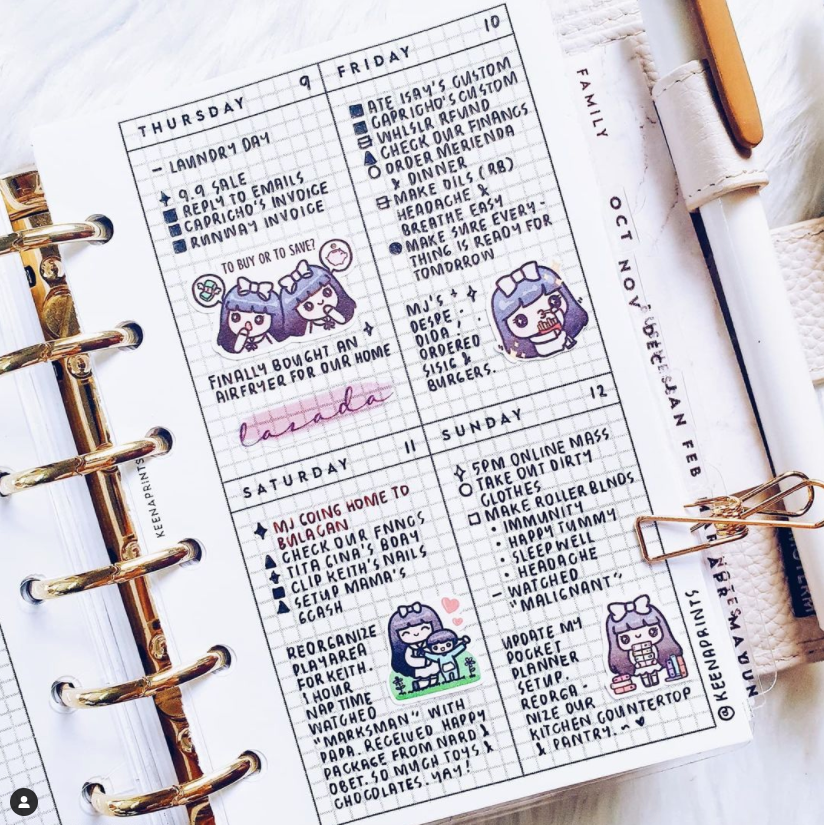 THURSDAY 9
- LAUNDRY DAY
9.9 SALE
REPLY TO EMAILS
CAPRICHO'S INVOICE
RUNWAY INVOICE
TO BUY OR TO SAVE?
FINALLY BOUGHT AN
AIRFRYER FOR OUR HOME
lazada
FRIDAY 10
ATE ISAY'S CUSTOM
CAPRICHO'S CUSTOM
WHLSLR RFUND
CHECK OUR FINANCS
ORDER MERIENDA
& DINNER
MAKE OILS (RB)
HEADACHE &
BREATHE EASY
MAKE SURE EVERY-
THING IS READY FOR
TOMORROW
MJ'S
DESPE.
DIDA,
ORDERED
SISIG &
BURGERS.
SATURDAY 11
MJ GOING HOME TO
BULACAN
CHECK OUR FNNCS
TITA GINA'S BDAY
CLIP KEITH'S NAILS
SETUP MAMA'S
GCASH
REORGANIZE
PLAY AREA
FOR KEITH.
1 HOUR
NAP TIME
WATCHED
"MARKSMAN" WITH
PAPA. RECEIVED HAPPY
PACKAGE FROM NARD &
OBET. SO MUCH TOYS &
CHOCOLATES. YAY!
SUNDAY 12
5PM ONLINE MASS
TAKE OUT DIRTY
CLOTHES
MAKE ROLLER BLNDS
• IMMUNITY
• HAPPY TUMMY
• SLEEP WELL
• HEADACHE
- WATCHED
"MALIGNANT"
UPDATE MY
POCKET
PLANNER
SETUP.
REORGA-
NIZE OUR
KITCHEN COUNTERTOP
& PANTRY.
@KEENAPRINTS
KEENAPRINTS
FAMILY
OCT NOV DEC JAN FEB